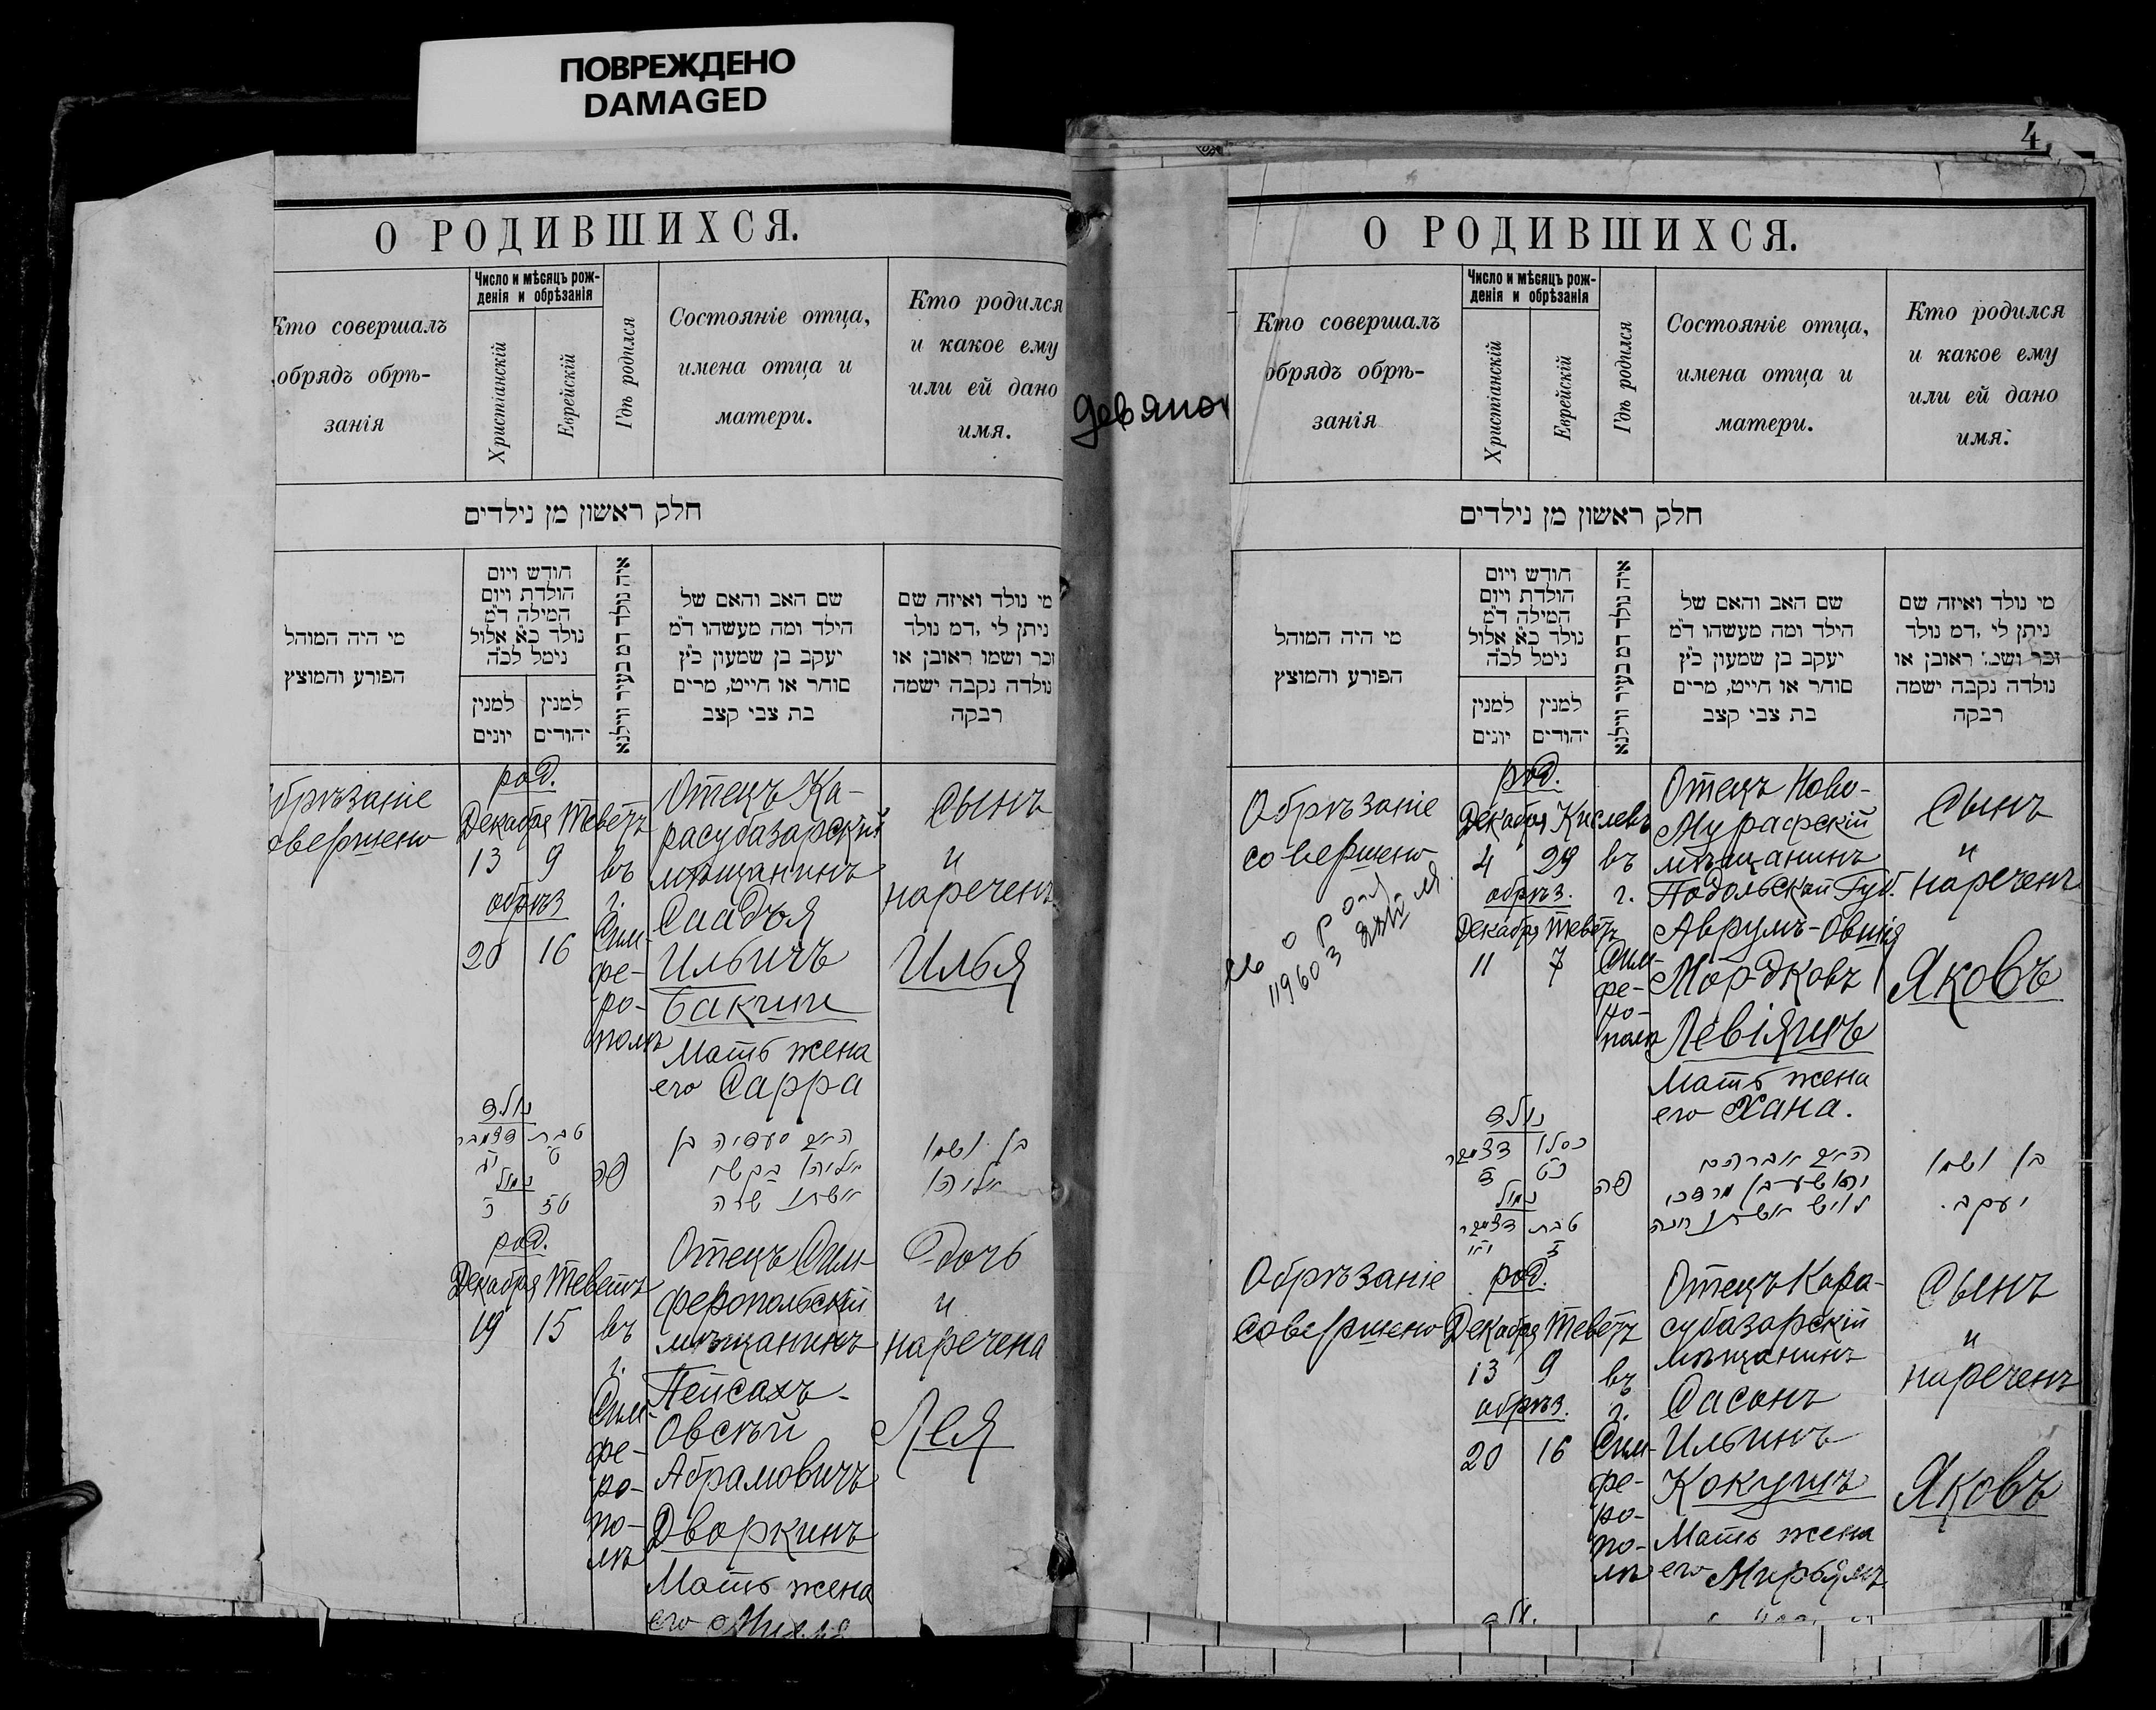 ПОВРЕЖДЕНО
DAMAGED
О РОДИВШИХСЯ.
Кто совершалъ
обрядъ обрѣ-
занія
Число и мѣсяцъ рож-
денія и обрѣзанія
Христіанскій
Еврейскій
Гдѣ родился
Состояніе отца,
имена отца и
матери.
Кто родился
и какое ему
или ей дано
имя.
חלק ראשון מן נילדים
מי היה המוהל
הפורע והמוצץ
חודש ויום
הולדת ויום
המילה ד״מ
נולד כ״א אלול
נימל לכ״ה
למנין
יונים
למנין
יהודים
איה נולד דמ בעיר ווילנא
שם האב והאם של
הילד ומה מעשהו ד״מ
יעקב בן שמעון כ״ץ
סוחר או חייט, מרים
בת צבי קצב
מי נולד ואיזה שם
ניתן לי ,דמ נולד
זכר ושמו ראובן או
נולדה נקבה ישמה
רבקה
брѣзаніе
овершено
род.
Декабря Теветъ
13 9
обрѣз
20 16
въ
г.
Сим-
фе-
ро-
полѣ
Отецъ Ка-
расубазарскій
мѣщанинъ
Саадья
Ильичъ
Бакши
Мать жена
его Сарра
Сынъ
и
нареченъ
Илья
נולד
דצמבר טבת
יג ט
נמול
כ טז
פה
האב סעדיה בן
אליהו בקשי
אשתו שרה
בן ושמו
אליהו
род.
Декабря Теветъ
19 15
въ
г.
Сим-
фе-
ро-
по-
лѣ
Отецъ Сим-
феропольскій
мѣщанинъ
Пейсахъ-
Овсѣй
Абрамовичъ
Дворкинъ
Мать жена
его
Дочь
и
наречена
Лея
4
девяно
О РОДИВШИХСЯ.
Кто совершалъ
обрядъ обрѣ-
занія
Число и мѣсяцъ рож-
денія и обрѣзанія
Христіанскій
Еврейскій
Гдѣ родился
Состояніе отца,
имена отца и
матери.
Кто родился
и какое ему
или ей дано
имя.
חלק ראשון מן נילדים
מי היה המוהל
הפורע והמוצץ
חודש ויום
הולדת ויום
המילה ד״מ
נולד כ״א אלול
נימל לכ״ה
למנין
יונים
למנין
יהודים
איה נולד דמ בעיר ווילנא
שם האב והאם של
הילד ומה מעשהו ד״מ
יעקב בן שמעון כ״ץ
סוחר או חייט, מרים
בת צבי קצב
מי נולד ואיזה שם
ניתן לי ,דמ נולד
זכר ושמו ראובן או
נולדה נקבה ישמה
רבקה
Обрѣзаніе
совершено
род.
Декабря Кислевъ
4 29
обрѣз.
Декабря Теветъ
11 7
въ
г.
Сим-
фе-
ро-
полѣ
Отецъ Ново-
Мурафскій
мѣщанинъ
Подольской Губ.
Аврумъ-Овшія
Мордковъ
Левіяшъ
Мать жена
его Хана.
Сынъ
и
нареченъ
Яковъ
נולד
דצמבר כסלו
ד כט
נמול
דצמבר טבת
יא ז
פה
האב אברהם
יהושע בן מרדכי
אשתו חנה
בן ושמו
יעקב.
Обрѣзаніе
совершено
род.
Декабря Теветъ
13 9
обрѣз.
20 16
въ
г.
Сим-
фе-
ро-
по-
лѣ
Отецъ Кара-
субазарскій
мѣщанинъ
Сасонъ
Ильинъ
Кокушъ
Мать жена
его Мирьямъ
Сынъ
и
нареченъ
Яковъ